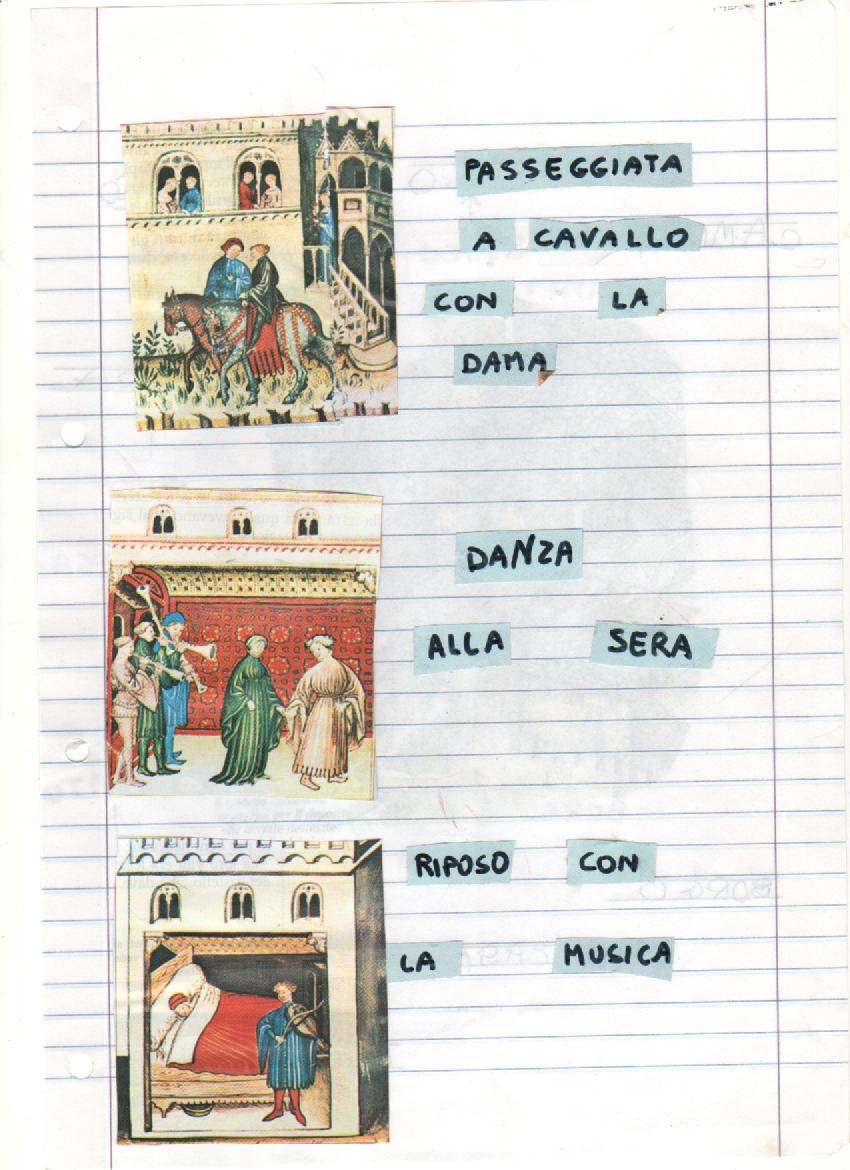 PASSEGGIATA
A CAVALLO
CON LA
DAMA
DANZA
ALLA SERA
RIPOSO CON
LA MUSICA